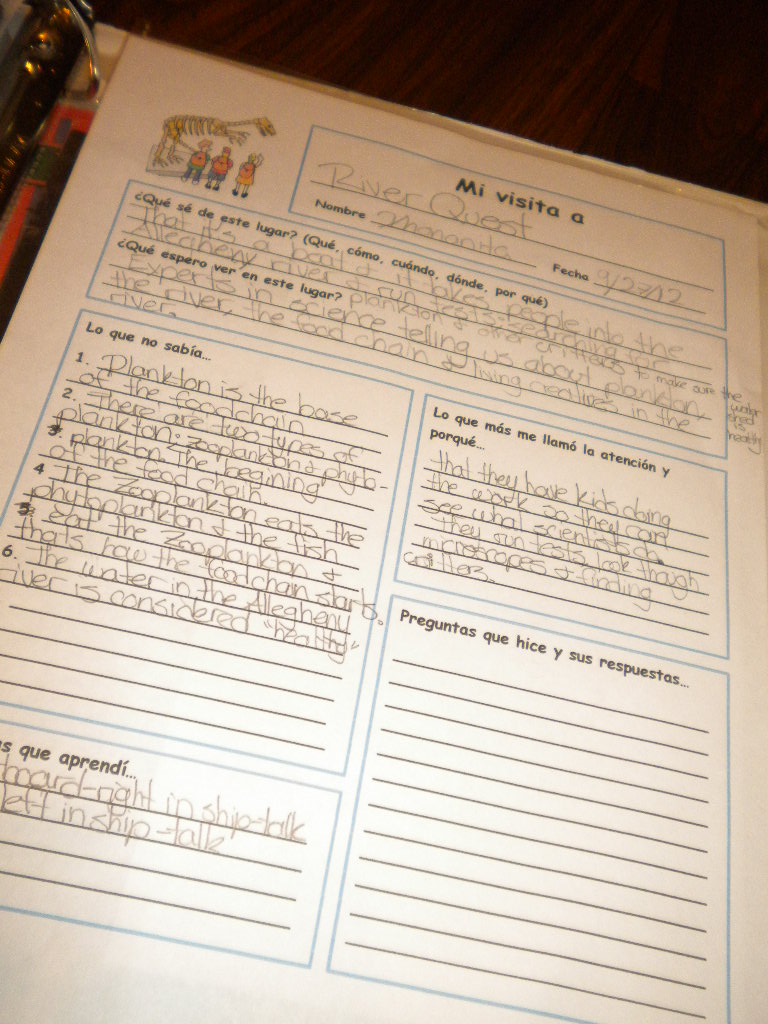 Mi visita a
River Quest
Nombre
Fecha 9/27/12
¿Qué sé de este lugar? (Qué, cómo, cuándo, dónde, por qué)
That it's a boat & it takes people into the
Allegheny river & run tests-searching for
plankton & other critters to make sure the
water
shed
is
healthy
¿Qué espero ver en este lugar?
Experts in science telling us about plankton,
the river, the food chain & living creatures in the
river.
Lo que no sabía...
1. Plankton is the base
of the foodchain
2. There are two types of
plankton: zooplankton & phyto-
3. plankton. The begining
of the food chain.
4 The Zooplankton eats the
phytoplankton & the fish
5. eat the Zooplankton &
thats how the foodchain starts.
6. The water in the Allegheny
river is considered "healthy"
Lo que más me llamó la atención y
porqué...
that they have kids doing
the work so they can
see what scientists do.
They run tests, look though
microscopes & finding
critters.
Preguntas que hice y sus respuestas...
que aprendí...
board-right in ship-talk
left in ship-talk